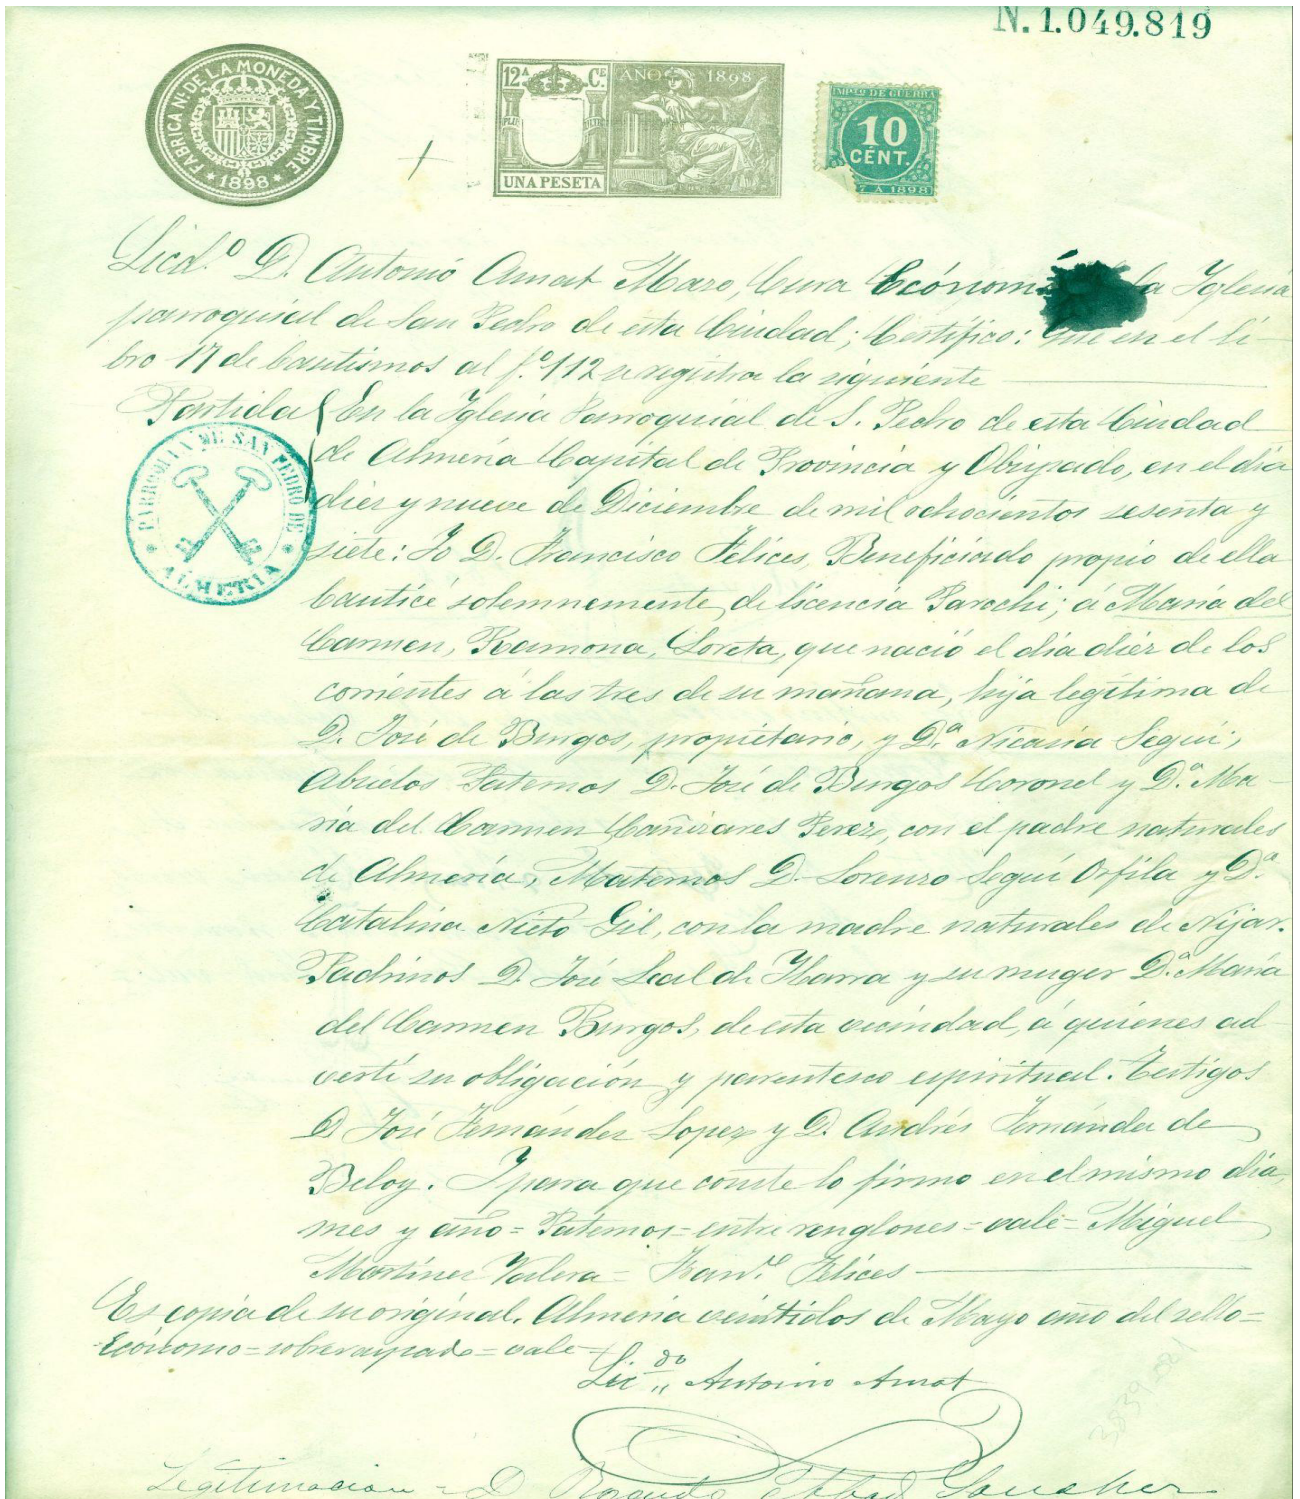 N. 1.049.819
FÁBRICA Nl. DE LA MONEDA Y TIMBRE
* 1898 *
12ª Cᴱ.
AÑO 1898
PLUS ULTRA
UNA PESETA
IMPTO DE GUERRA
10
CÉNT.
7 A 1898
Licdº D. Antonio Amat Maro, Cura Ecónom la Yglesia
parroquial de San Pedro de esta Ciudad; Certifico: Que en el li-
bro 17 de bautismos al fº 112 se registra la siguiente
Partida { En la Yglesia Parroquial de S. Pedro de esta Ciudad
de Almería Capital de Provincia y Obispado, en el dia
diez y nueve de Diciembre de mil ochocientos sesenta y
siete: Yo D. Francisco Felices, Beneficiado propio de ella
bauticé solemnemente, de licencia Parochi; á María del
Carmen, Ramona, Loreta, que nació el dia diez de los
corrientes á las tres de su mañana, hija legítima de
D. José de Burgos, propietario, y Dª Nicasia Seguí;
Abuelos Paternos D. José de Burgos Coronel y Dª Ma-
ria del Carmen Cañizares Perez, con el padre naturales
de Almería, Maternos D. Lorenzo Seguí Orfila y Dª
Catalina Nieto Gil, con la madre naturales de Nijar.
Padrinos D. José Leal de Ybarra y su muger Dª María
del Carmen Burgos, de esta vecindad, á quienes ad-
vertí su obligación y parentesco espiritual. Testigos
D. José Fernández Lopez y D. Andrés Fernánda de
Beloy. Y para que conste lo firmo en el mismo dia,
mes y año = Paternos = entre renglones = vale = Miguel
Martínez Valera = Franc Felices
Es copia de su original. Almeria veintidos de Mayo año del sello =
Ecónomo = sobreraspado = vale =
Licdo Antonio Amat
PARROQUIA DE SAN PEDRO DE
* ALMERIA *
Legitimacion = D Rosendo Abad Sanchez